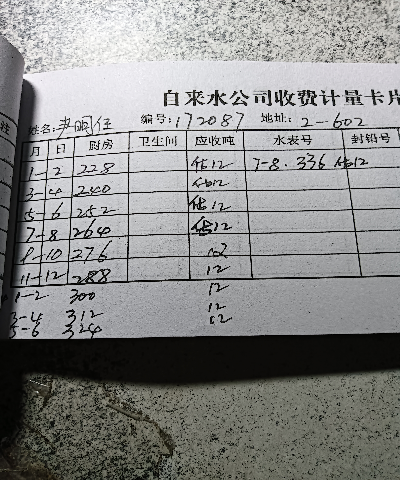 自来水公司收费计量卡片
姓名: 尹明任 编号: 172087 地址: 2-602
月 日 厨房 卫生间 应收吨 水表号 封铅号
1-2 228 估12 7-8. 336 估12
3-4 240 估12
5-6 252 估12
7-8 264 估12
9-10 276 12
11-12 288 12
1-2 300 12
3-4 312 12
5-6 324 12